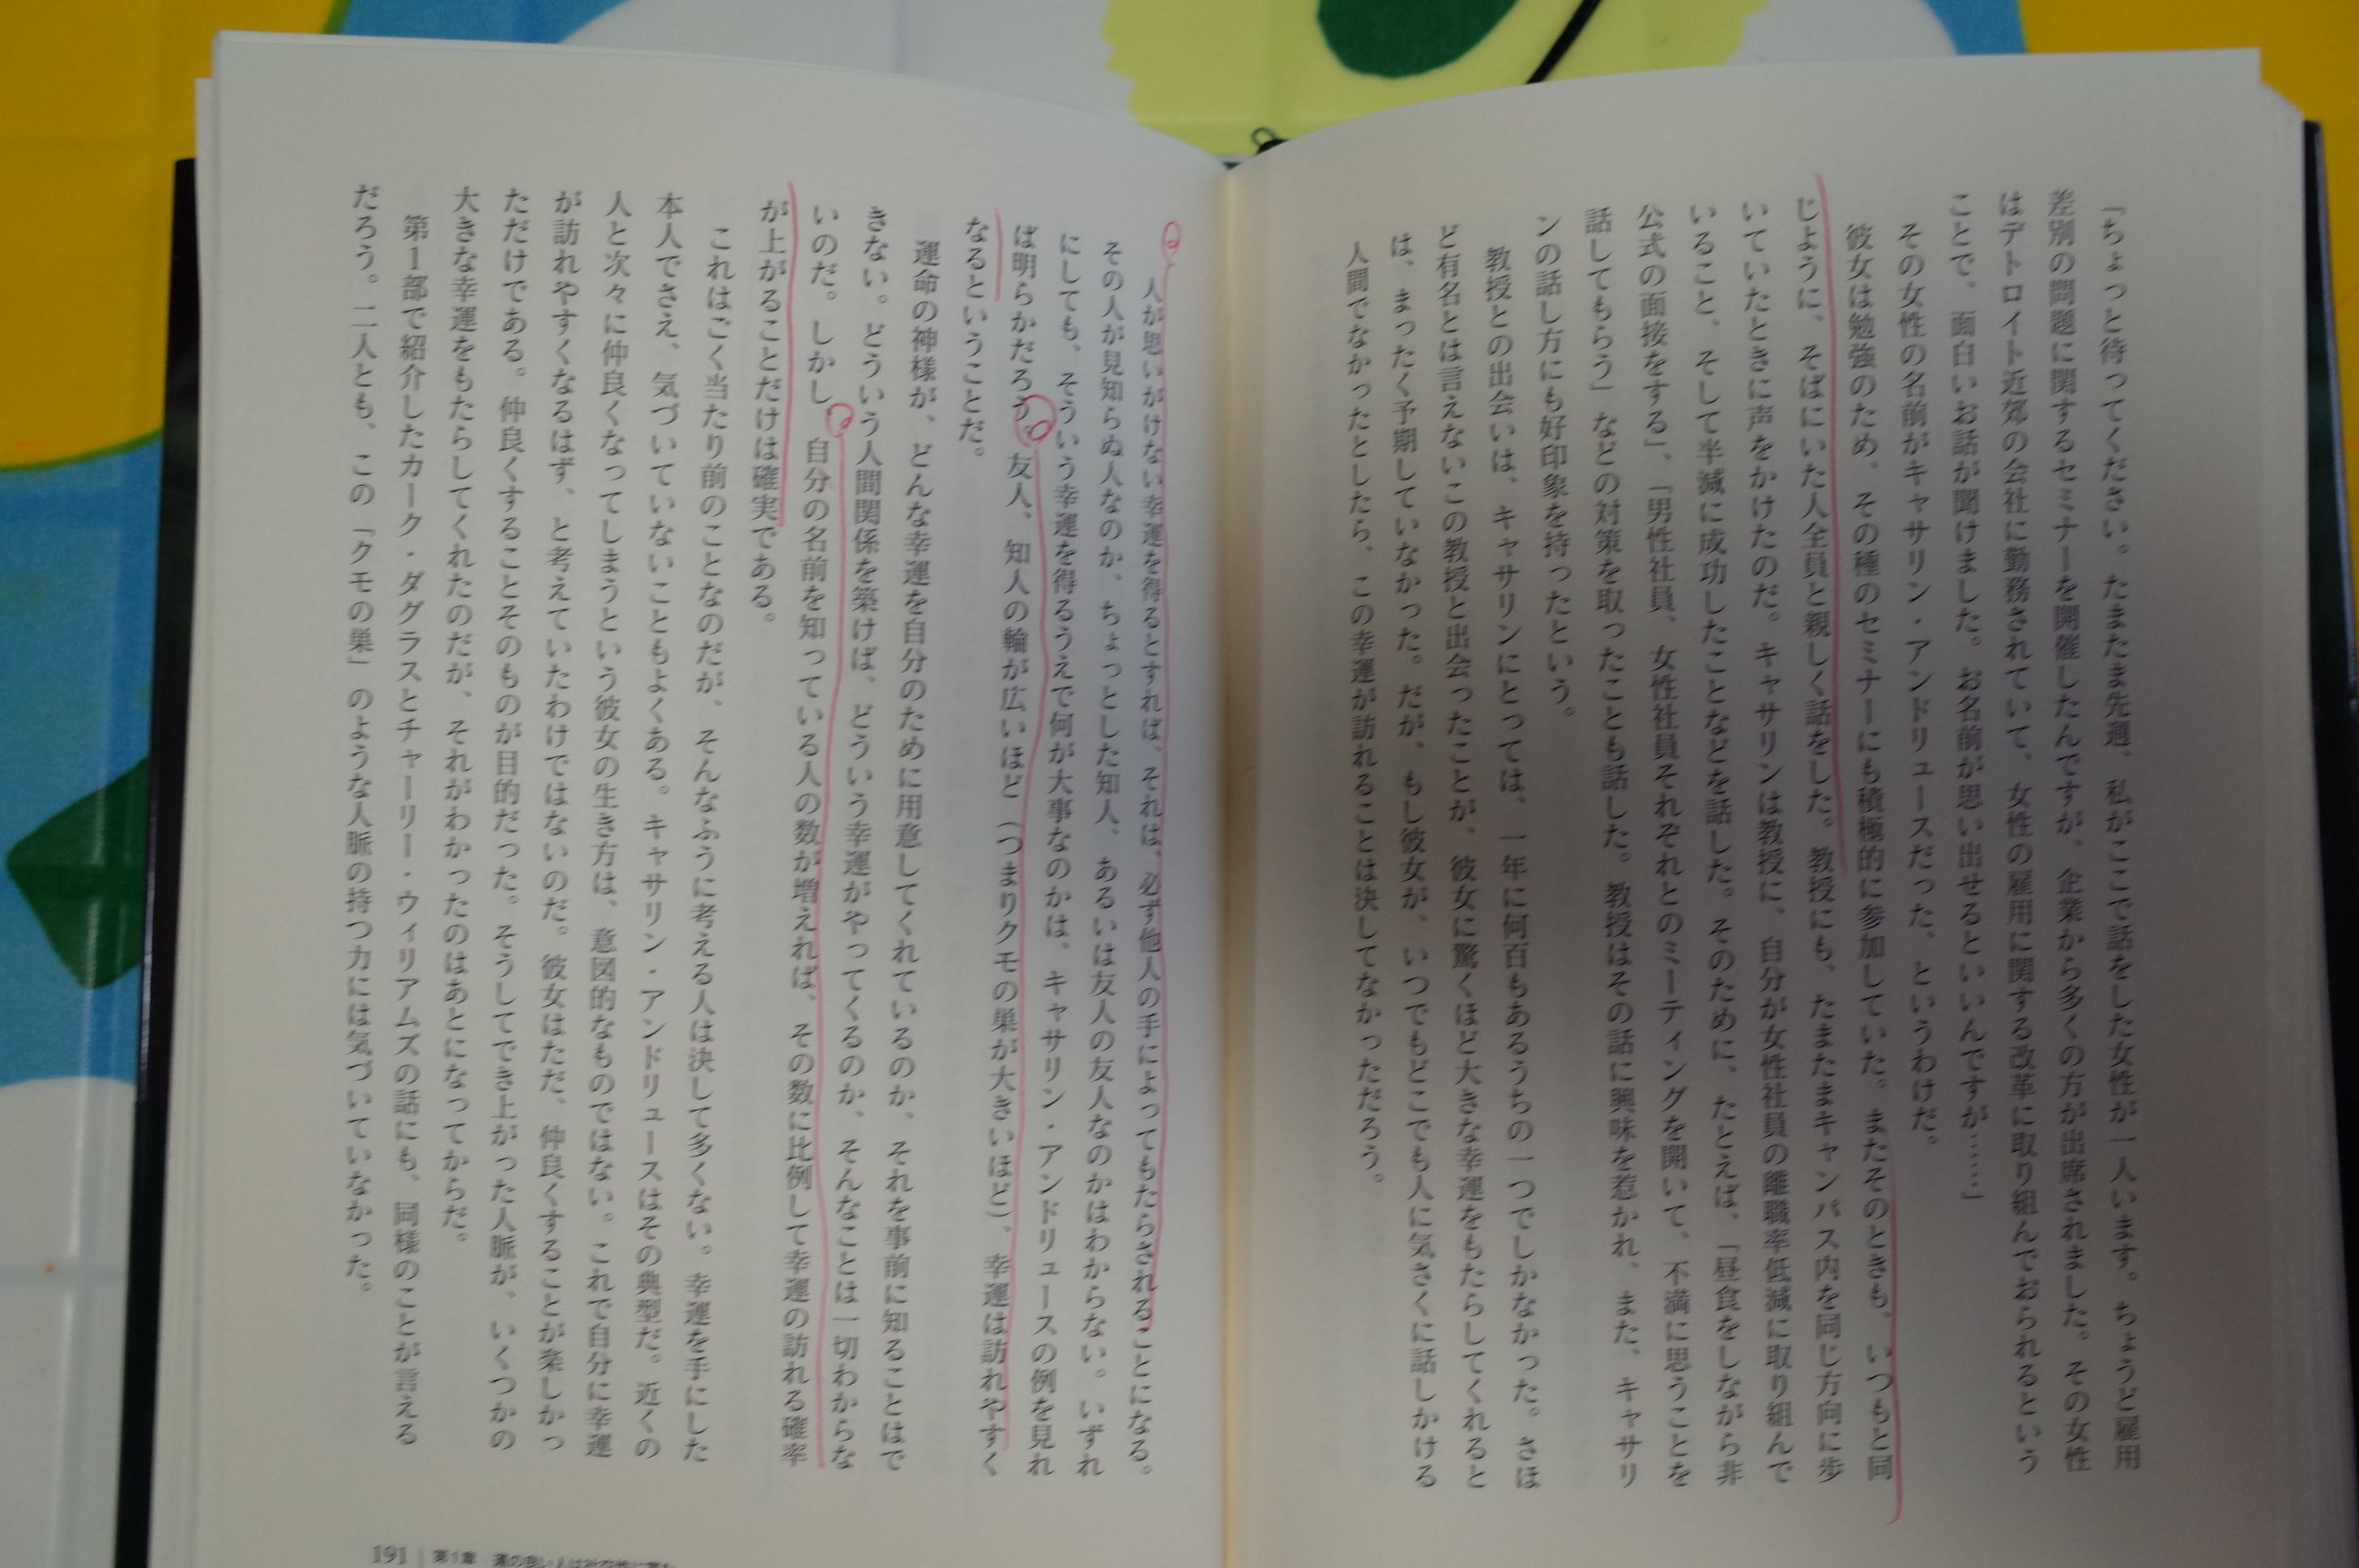 「ちょっと待ってください。たまたま先週、私がここで話をした女性が一人います。ちょうど雇用
差別の問題に関するセミナーを開催したんですが、企業から多くの方が出席されました。その女性
はデトロイト近郊の会社に勤務されていて、女性の雇用に関する改革に取り組んでおられるという
ことで、面白いお話が聞けました。お名前が思い出せるといいんですが……」
その女性の名前がキャサリン・アンドリュースだった、というわけだ。
彼女は勉強のため、その種のセミナーにも積極的に参加していた。またそのときも、いつもと同
じように、そばにいた人全員と親しく話をした。教授にも、たまたまキャンパス内を同じ方向に歩
いていたときに声をかけたのだ。キャサリンは教授に、自分が女性社員の離職率低減に取り組んで
いること、そして半減に成功したことなどを話した。そのために、たとえば、「昼食をしながら非
公式の面接をする」、「男性社員、女性社員それぞれとのミーティングを開いて、不満に思うことを
話してもらう」などの対策を取ったことも話した。教授はその話に興味を惹かれ、また、キャサリ
ンの話し方にも好印象を持ったという。
教授との出会いは、キャサリンにとっては、一年に何百もあるうちの一つでしかなかった。さほ
ど有名とは言えないこの教授と出会ったことが、彼女に驚くほど大きな幸運をもたらしてくれると
は、まったく予期していなかった。だが、もし彼女が、いつでもどこでも人に気さくに話しかける
人間でなかったとしたら、この幸運が訪れることは決してなかっただろう。
人が思いがけない幸運を得るとすれば、それは、必ず他人の手によってもたらされることになる。
その人が見知らぬ人なのか、ちょっとした知人、あるいは友人の友人なのかはわからない。いずれ
にしても、そういう幸運を得るうえで何が大事なのかは、キャサリン・アンドリュースの例を見れ
ば明らかだろう。友人、知人の輪が広いほど（つまりクモの巣が大きいほど）、幸運は訪れやすく
なるということだ。
運命の神様が、どんな幸運を自分のために用意してくれているのか、それを事前に知ることはで
きない。どういう人間関係を築けば、どういう幸運がやってくるのか、そんなことは一切わからな
いのだ。しかし、自分の名前を知っている人の数が増えれば、その数に比例して幸運の訪れる確率
が上がることだけは確実である。
これはごく当たり前のことなのだが、そんなふうに考える人は決して多くない。幸運を手にした
本人でさえ、気づいていないこともよくある。キャサリン・アンドリュースはその典型だ。近くの
人と次々に仲良くなってしまうという彼女の生き方は、意図的なものではない。これで自分に幸運
が訪れやすくなるはず、と考えていたわけではないのだ。彼女はただ、仲良くすることが楽しかっ
ただけである。仲良くすることそのものが目的だった。そうしてでき上がった人脈が、いくつかの
大きな幸運をもたらしてくれたのだが、それがわかったのはあとになってからだ。
第1部で紹介したカーク・ダグラスとチャーリー・ウィリアムズの話にも、同様のことが言える
だろう。二人とも、この「クモの巣」のような人脈の持つ力には気づいていなかった。
191 第1章